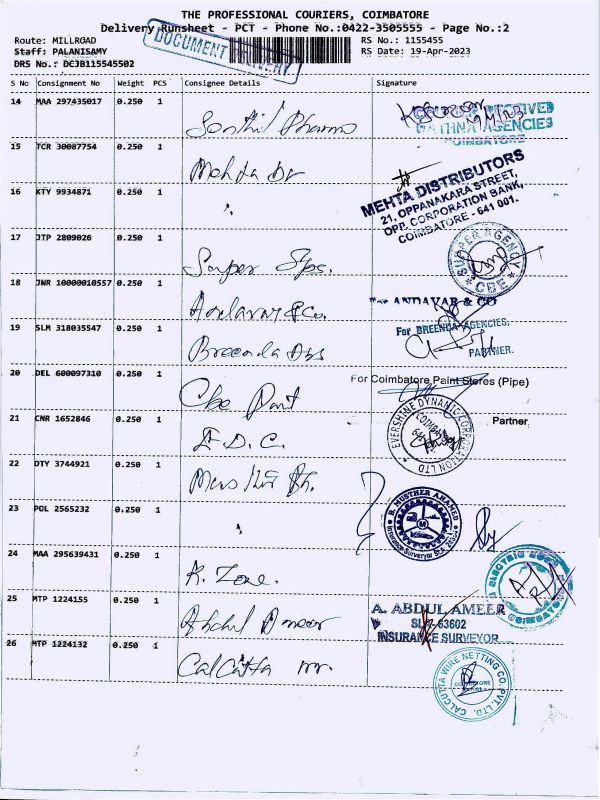 THE PROFESSIONAL COURIERS, COIMBATORE
Delivery Runsheet - PCT - Phone No.:0422-3505555 - Page No.:2
Route: MILLROAD
RS No.: 1155455
Staff: PALANISAMY
RS Date: 19-Apr-2023
DRS No.: DCJB115545502
DOCUMENT DELIVERY
S No Consignment No Weight PCS Consignee Details Signature
14 MAA 297435017 0.250 1
RECEIVED
AGENCIES
COIMBATORE
15 TCR 30087754 0.250 1 Mehta Dr
MEHTA DISTRIBUTORS
21, OPPANAKARA STREET,
OPP. CORPORATION BANK,
COIMBATORE - 641 001.
16 KTY 9934871 0.250 1 "
17 JTP 2809026 0.250 1 Super
SUPER AGENCY
CBE
18 JNR 10000010557 0.250 1 Andavar & Co.
For ANDAVAR & CO
19 SLM 318035547 0.250 1
For BREENDA AGENCIES,
PARTNER.
20 DEL 600097310 0.250 1 Cbe Paint
For Coimbatore Paint Stores (Pipe)
Partner
21 CNR 1652846 0.250 1 E.D.C.
EVERSHINE DYNAMIC CORPORATION LTD
22 DTY 3744921 0.250 1
B. MUSTHER AHAMED
23 POL 2565232 0.250 1 "
24 MAA 295639431 0.250 1 K. Zone.
ELECTRIC
COIMBATORE
25 MTP 1224155 0.250 1 Abdul Ameer
A. ABDUL AMEER
SLA-63602
INSURANCE SURVEYOR
26 MTP 1224132 0.250 1 Calcutta
CALCUTTA WIRE NETTING CO. PVT. LTD.
COIMBATORE